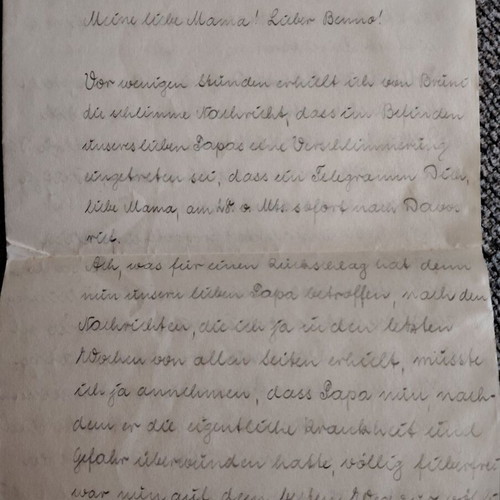 Meine liebe Mama! Lieber Benno!
Vor wenigen Stunden erhielt ich von Bruno
die schlimme Nachricht, dass im Befinden
unseres lieben Papas eine Verschlimmerung
eingetreten sei, dass ein Telegramm Dich,
liebe Mama, am 28. v. Mts. sofort nach Davos
rief.
Ach, was für einen Rückschlag hat denn
nun unsern lieben Papa betroffen, nach den
Nachrichten, die ich ja in den letzten
Wochen von allen Seiten erhielt, müsste
ich ja annehmen, dass Papa nun nach-
dem er die eigentliche Krankheit und
Gefahr überwunden hatte, völlig fieberfrei
war nun auf dem besten Wege